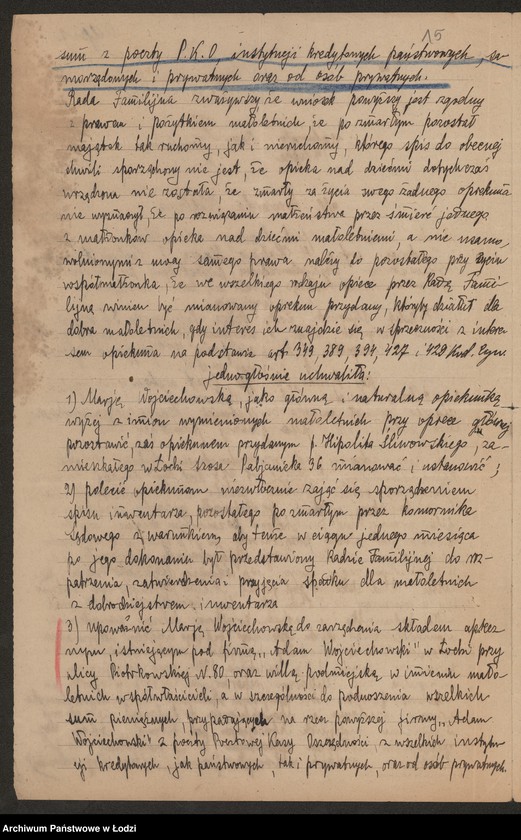 15
sum z poczty P.K.O. instytucji kredytowych państwowych, sa-
morządowych i prywatnych oraz od osób prywatnych.
Rada Familijna zważywszy że wniosek powyższy jest zgodny
z prawem i pożytkiem małoletnich, że po zmarłym pozostał
majątek tak ruchomy, jak i nieruchomy, którego spis do obecnej
chwili sporządzony nie jest, że opieka nad dziećmi dotychczas
urządzona nie została, że zmarły za życia swego żadnego opiekuna
nie wyznaczył, że po rozwiązaniu małżeństwa przez śmierć jednego
z małżonków opieka nad dziećmi małoletniemi, a nie usamo-
wolnionymi z mocy samego prawa należy do pozostałego przy życiu
współmałżonka, że we wszelkiego rodzaju opiece przez Radę Fami-
lijną winien być mianowany opiekun przydany, któryby działał dla
dobra małoletnich, gdy interes ich znajdzie się w sprzeczności z intere-
sem opiekuna na podstawie art. 349, 389, 394, 427 i 429 Kod. Cyw.
jednogłośnie uchwaliła:
1) Marję Wojciechowską, jako główną i naturalną opiekunkę
wyżej z imion wymienionych małoletnich przy opiece głównej
pozostawić, zaś opiekunem przydanym p. Hipolita Śliwowskiego, za-
mieszkałego w Łodzi szosa Pabjanicka 36 mianować i ustanowić;
2) polecić opiekunom niezwłocznie zająć się sporządzeniem
spisu inwentarza, pozostałego po zmarłym przez komornika
sądowego z warunkiem, aby tenże w ciągu jednego miesiąca
po jego dokonaniu był przedstawiony Radzie Familijnej do roz-
patrzenia, zatwierdzenia i przyjęcia spadku dla małoletnich
z dobrodziejstwem inwentarza
3) upoważnić Marję Wojciechowską do zarządzania składem aptecz-
nym, istniejącym pod firmą „Adam Wojciechowski" w Łodzi przy
ulicy Piotrkowskiej N. 80 oraz willą podmiejską, w imieniu mało-
letnich współwłaścicieli, a w szczególności do podnoszenia wszelkich
sum pieniężnych, przypadających na rzecz powyższej firmy „Adam
Wojciechowski" z poczty Pocztowej Kasy Oszczędności, z wszelkich instytu-
cji kredytowych, jak państwowych, tak i prywatnych, oraz od osób prywatnych.
Archiwum Państwowe w Łodzi